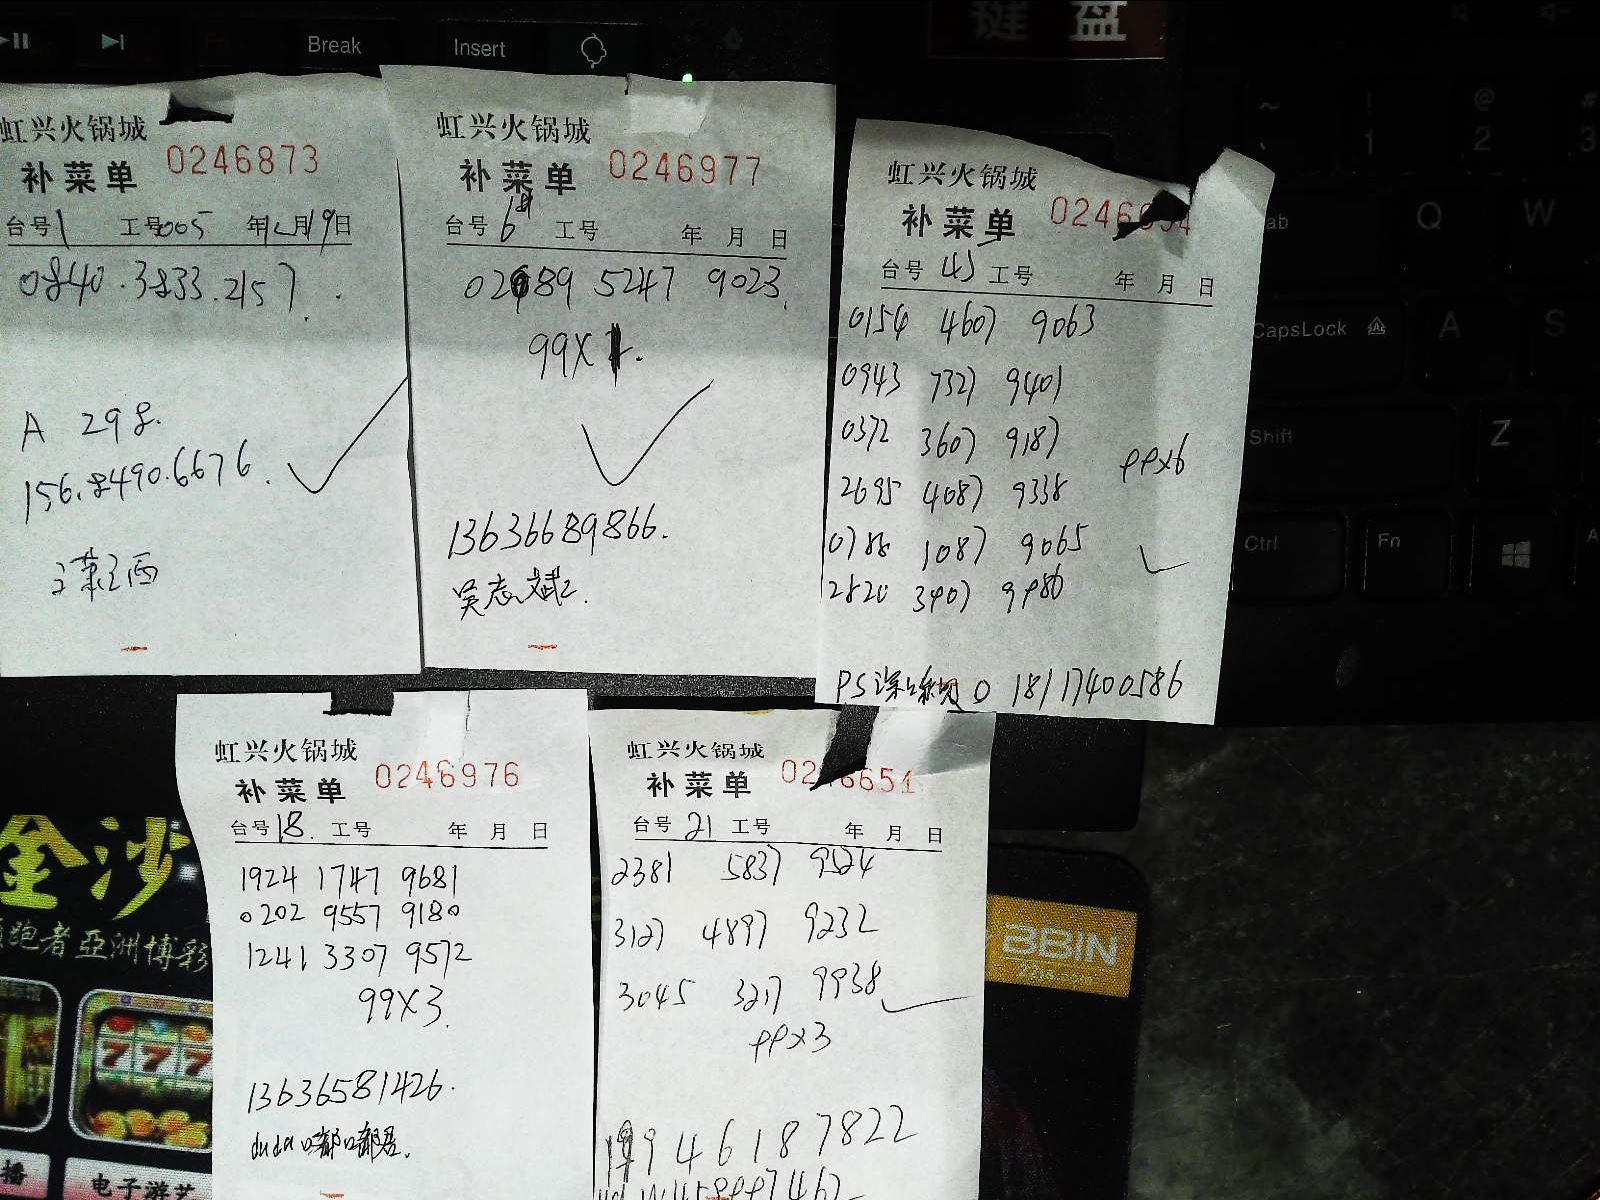 Break
Insert
键盘
虹兴火锅城
补菜单 0246873
台号1 工号005 年12月19日
0840.3833.2157.
A 298.
156.8490.6676.
虹兴火锅城
补菜单 0246977
台号6 工号 年 月 日
5247 9023.
99X1.
13636689866.
吴志斌
虹兴火锅城
补菜单
台号 工号 年 月 日
0154 4607 9063
0943 7327 9401
0372 3607 9187
2695 4087 9338
0788 1087 9065
2820 3907 9980
PPx6
PS 18117400586
虹兴火锅城
补菜单 0246976
台号18. 工号 年 月 日
1924 1747 9681
0202 9557 9180
1241 3307 9572
99X3.
13636581426.
dudu
虹兴火锅城
补菜单
台号 21 工号 年 月 日
2381 5837 9524
3127 4897 9232
3045 3217 9938
PPx3
946187822
~
`
!
1
@
2
#
3
Q
W
CapsLock
A
S
Shift
Z
Ctrl
Fn
金沙
跑者 亞洲博彩
777
播
电子游艺
BBIN